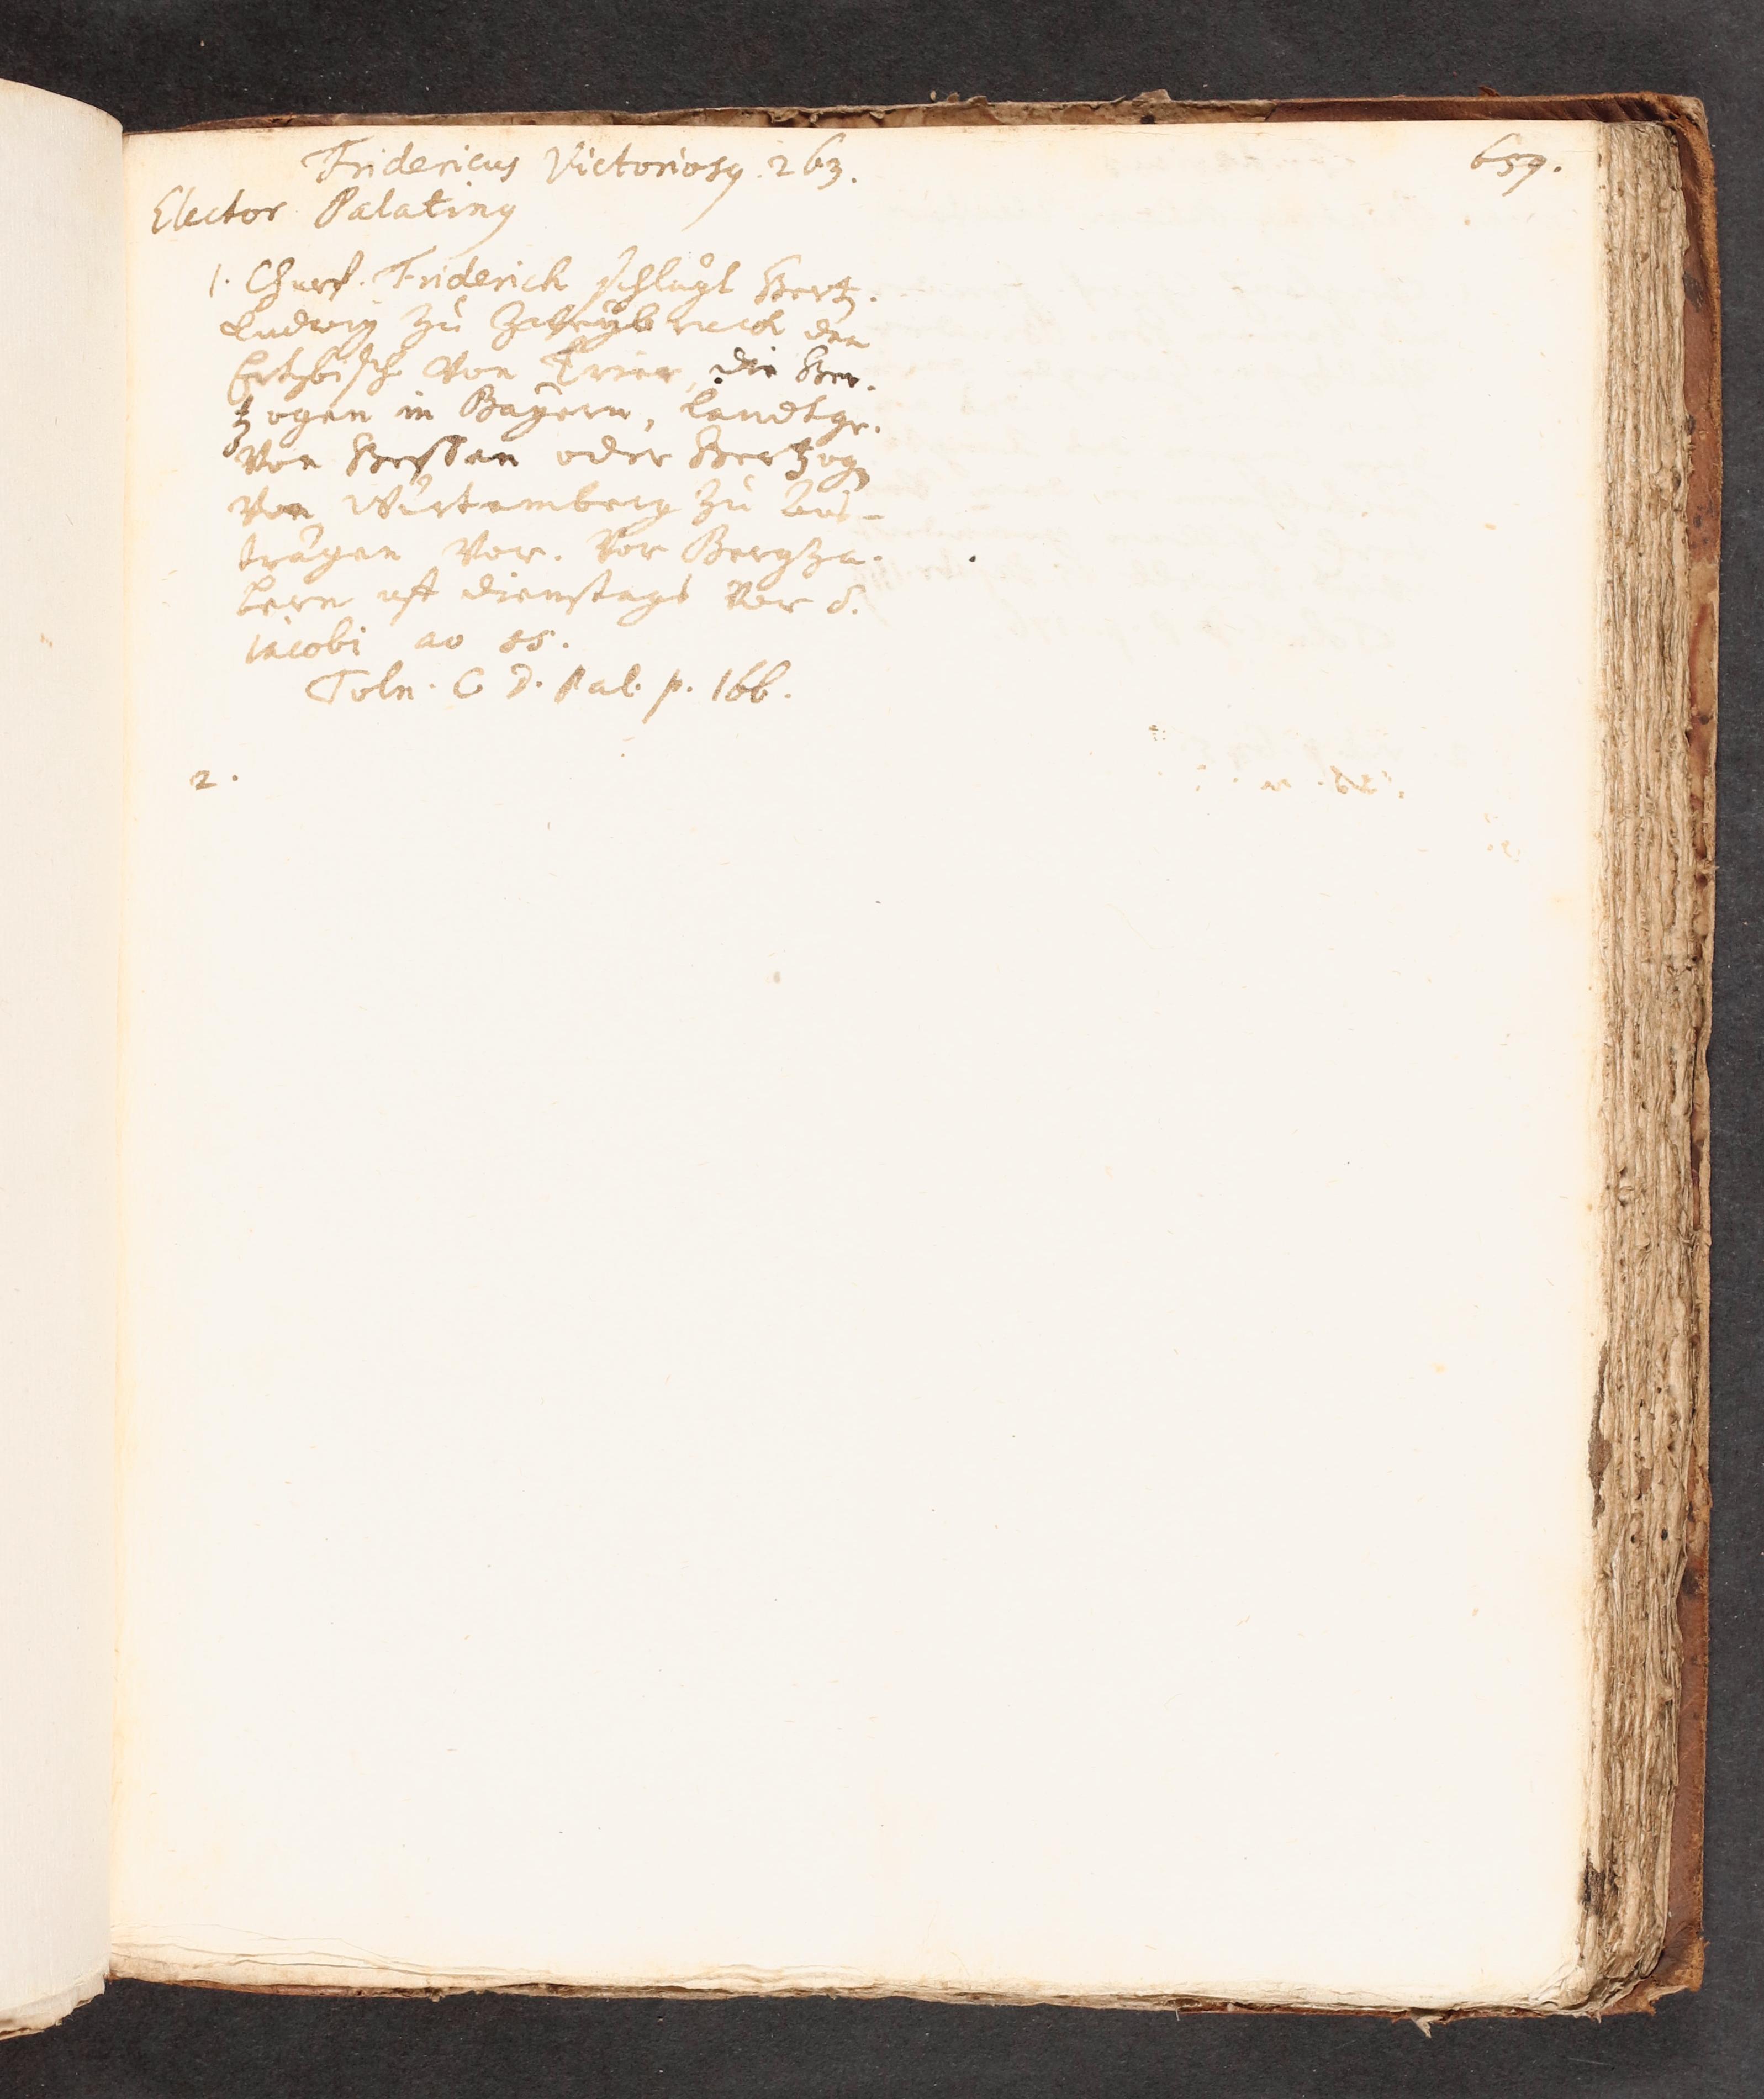 Fridericus Victoriosq. 263. 659.
Elector Palatinq
1. Churf. Friderich schlägt Hertz.
Ludwig zu Zweybruck den
Ertzbisch von Trier, die Her-
tzogen in Bayern, Landtgr.
von Hessen oder Hertzog
von Würtemberg zu Aus-
trägen vor. Vor Bergza-
bern uff dienstags vor S.
Iacobi ao 55.
Toln. C D. Pal. p. 166.
2.